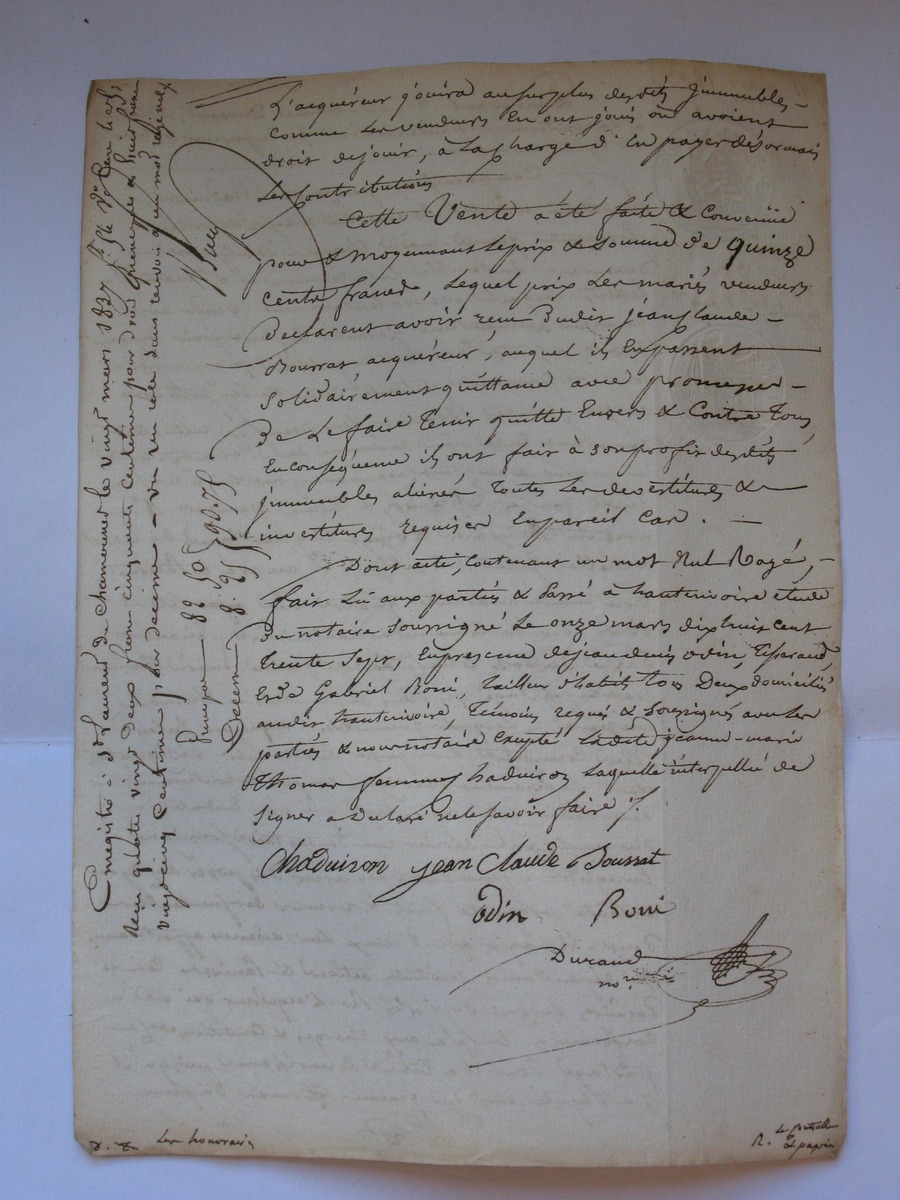 L'acquéreur jouira au surplus desdits jmmeubles
comme les vendeurs En ont joui ou avoient
droit de jouir, a la charge d'En payer désormais
les Contributions
Cette Vente a été faite & Convenüe
pour & moyennant le prix & Somme de quinze
cents francs, lequel prix les mariés vendeurs
Declarent avoir reçu Dudit jean Claude
Bourrat, acquéreur, auquel ils En passent
solidairement quittance avec promesse
De le faire Tenir quitte Envers & Contre Tous,
En conséquence ils ont fait à son profit desdits
jmmeubles aliénés Toutes les devestitures &
investitures requises En pareil Cas.
Dont acte, Contenant un mot Nul Rayé,
fait Lu aux parties & Passé à hauterivoire étude
Du notaire soussigné Le onze mars dix huit cent
Trente Sept, En presence de jean denis odin, Tisserand,
Et de Gabriel Boni, Tailleur d'habits, tous Deux domiciliés
audit hauterivoire, Témoins requis & soussignés avec les
parties & nous notaire Excepté ladite jeanne-marie
Thomas femme Chaduiron laquelle interpellée de
signer a Declaré ne le savoir faire /.
Chaduiron jean Claude Bourrat
odin Boni
Durand
no.re
Enregistré à St Laurent de Chamousset le vingt mars 1837 f.
Reçu quatre vingt deux francs cinquante centimes pour droit
vingt cinq centimes pour decime
Principal 82 50
Decime 8. 25
90. 75
Les honoraires
R.